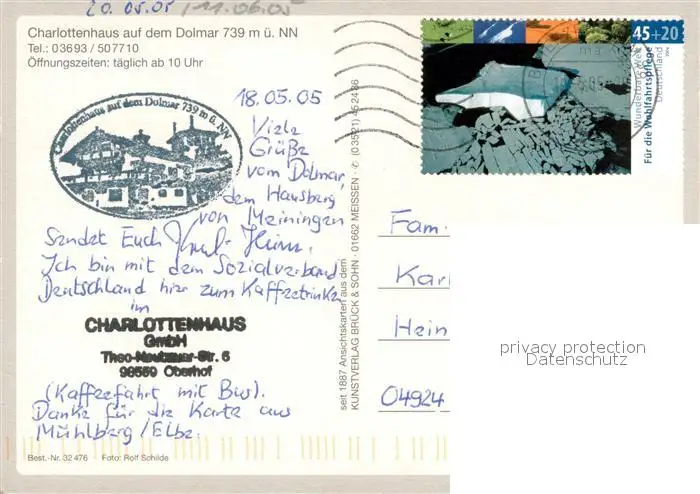 20.05.05 / 11.06.05
Charlottenhaus auf dem Dolmar 739 m ü. NN
Tel.: 03693 / 507710
Öffnungszeiten: täglich ab 10 Uhr
Charlottenhaus auf dem Dolmar 739 m ü. NN
18.05.05
Viele
Grüße
vom Dolmar,
dem Hausberg
von Meiningen
Sendet Euch
Ich bin mit dem Sozialverband
Deutschland hier zum Kaffeetrinken
im
CHARLOTTENHAUS
GmbH
Theo-Neubauer-Str. 6
98559 Oberhof
(Kaffeefahrt mit Bus).
Danke für die Karte aus
Mühlberg/Elbe.
Best.-Nr. 32 476 Foto: Rolf Schilde
seit 1887 Ansichtskarten aus dem
KUNSTVERLAG BRÜCK & SOHN · 01662 MEISSEN · ✆ (03521) 45 24 86
45+20
Wunderbare Welt
Deutschland
Für die Wohlfahrtspflege
Fam.
Karl
Hein
04924
privacy protection
Datenschutz